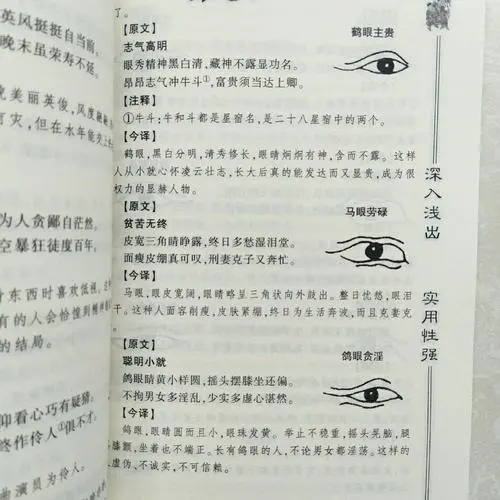 英风挺挺自当前。
晚末虽荣寿不延。
美丽英俊，风度翩翩
灾，但在水年能
为人贪鄙自茫然。
空暴狂徒度百年。
东西时喜欢低视。
有的人会恰
的结局。
仰看心巧有疑猜。
终作伶人①俱不才。
演员为伶人。
了。
【原文】
志气高明
眼秀精神黑白清，藏神不露显功名。
昂昂志气冲牛斗①，富贵须当达上卿。
【注释】
①牛斗：牛和斗都是星宿名，是二十八星宿中的两个。
【今译】
鹤眼，黑白分明，清秀修长，眼睛炯炯有神，含而不露。这样
人从小就心怀凌云壮志，长大后真的能发达而又显贵，成为很
权力的显赫人物。
鹤眼主贵
【原文】
贫苦无终
皮宽三角睛睁露，终日多愁湿泪堂。
面瘦皮绷真可叹，刑妻克子又奔忙。
【今译】
马眼，眼皮宽阔，眼睛略呈三角状向外鼓出。整日忧愁，眼泪
干。这种人面容削瘦，皮肤紧绷，终日为生活奔波，而且克妻克
马眼劳碌
【原文】
聪明小就
鸽眼睛黄小样圆，摇头摆膝坐还偏。
不拘男女多淫乱，少实多虚心湛然。
【今译】
鸽眼，眼睛圆而且小，眼珠发黄。举止不稳重，摇头晃脑，腿
膝颤，坐着也不端正。长有鸽眼的人，不论男女都淫荡。这样的
人虚伪、不诚实，不可信赖。
鸽眼贪淫
深入浅出
实用性强